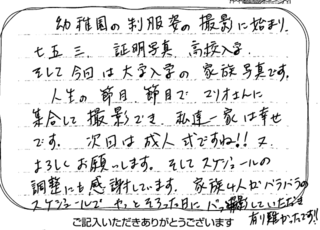 幼稚園の制服姿の撮影に始まり、
七五三、証明写真、高校入学、
そして今回は大学入学の家族写真です。
人生の節目、節目でマリオさんに
集合して撮影でき、私達一家は幸せ
です。次回は成人式ですね!!又、
よろしくお願いします。そしてスケジュールの
調整にも感謝しています。家族4人がバラバラの
スケジュールで やっとそろった日に 撮影していただき
有り難かったです!!
ご記入いただきありがとうございます